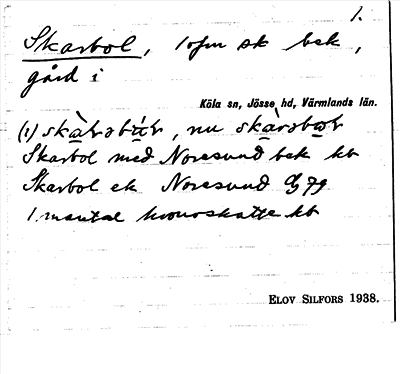 1.
Skarbol, 1 ofm sk bek,
gård i
Köla sn, Jösse hd, Värmlands län.
(1) skàrəbùr, nu skàrəbor
Skarbol med Noresund bek kb
Skarbol ek Noresund G 79
1 mantal kronoskatte kb
ELOV SILFORS 1938.